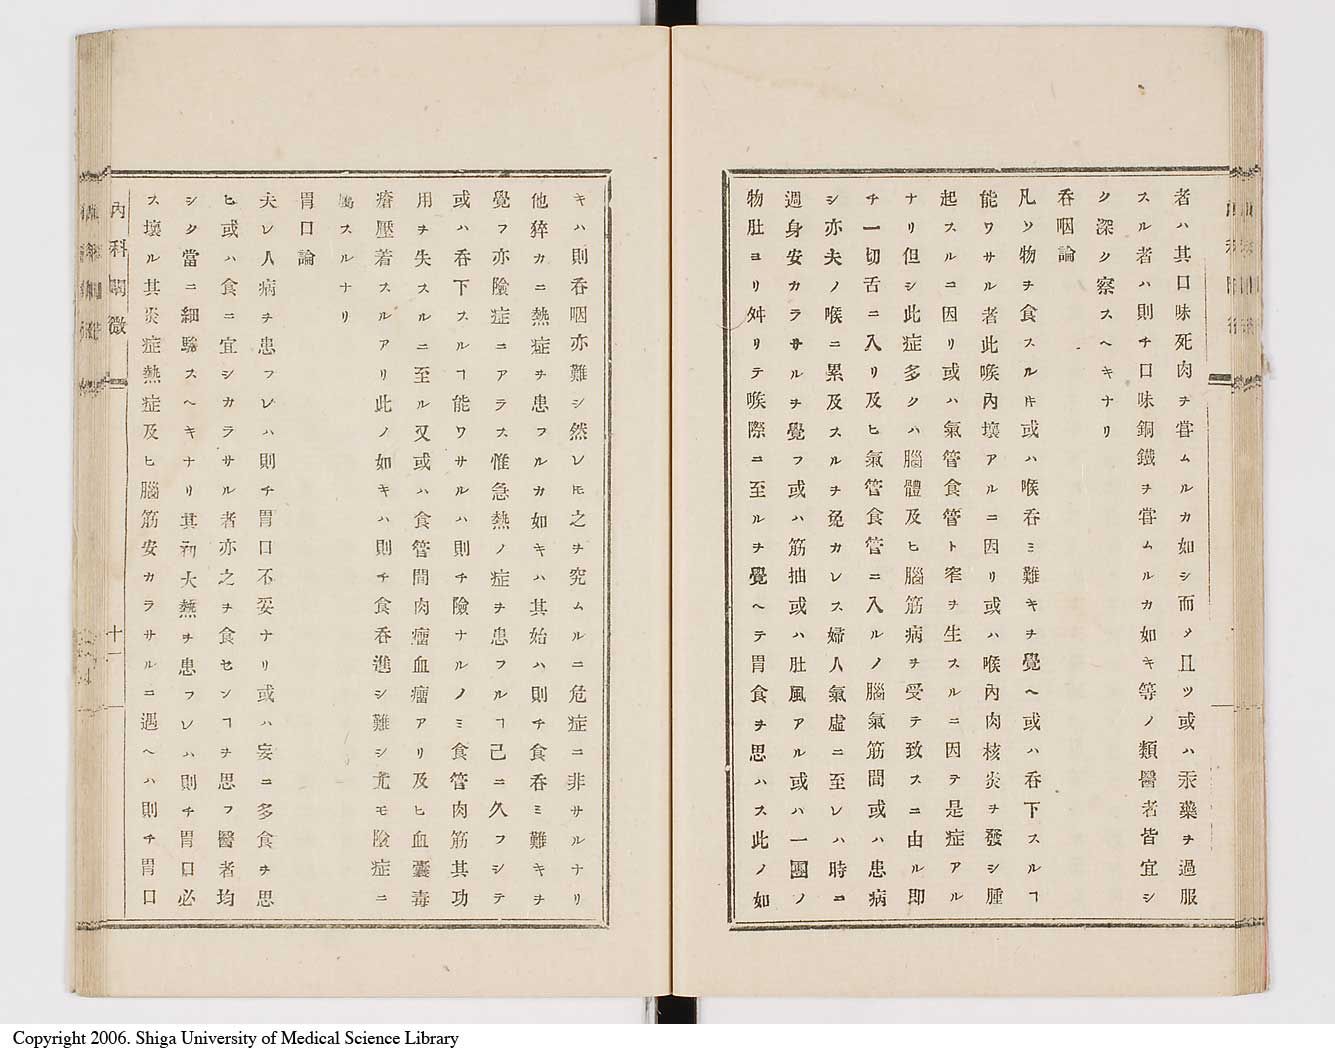 者ハ其口味死肉ヲ甞ムルカ如シ而〆且ツ或ハ汞藥ヲ過服
スル者ハ則チ口味銅鐵ヲ甞ムルカ如キ等ノ類醫者皆宜シ
ク深ク察スヘキナリ
呑咽論
凡ソ物ヲ食スル𪜈或ハ喉呑ミ難キヲ覺ヘ或ハ呑下スルヿ
能ワサル者此喉內壞アルニ因リ或ハ喉內肉核炎ヲ發シ腫
起スルニ因リ或ハ氣管食管ト窄ヲ生スルニ因テ是症アル
ナリ但シ此症多クハ腦體及ヒ腦筋病ヲ受テ致スニ由ル即
チ一切舌ニ入リ及ヒ氣管食管ニ入ルノ腦氣筋間或ハ患病
シ亦夫ノ喉ニ累及スルヲ免カレス婦人氣虛ニ至レハ時ニ
週身安カラサルヲ覺フ或ハ筋抽或ハ肚風アル或ハ一團ノ
物肚ヨリ舛リテ喉際ニ至ルヲ覺ヘテ胃食ヲ思ハス此ノ如
キハ則呑咽亦難シ然レ𪜈之ヲ究ムルニ危症ニ非サルナリ
他猝カニ熱症ヲ患フルカ如キハ其始ハ則チ食呑ミ難キヲ
覺フ亦險症ニアラス惟急熱ノ症ヲ患フルヿ己ニ久フシテ
或ハ呑下スルヿ能ワサルハ則チ險ナルノミ食管肉筋其功
用ヲ失スルニ至ル又或ハ食管間肉瘤血瘤アリ及ヒ血囊毒
瘡壓着スルアリ此ノ如キハ則チ食呑進シ難シ尤モ險症ニ
屬スルナリ
胃口論
夫レ人病ヲ患フレハ則チ胃口不妥ナリ或ハ妄ニ多食ヲ思
ヒ或ハ食ニ宜シカラサル者亦之ヲ食センヿヲ思フ醫者均
シク當ニ細驗スヘキナリ其初大熱ヲ患フレハ則チ胃口必
ス壞ル其炎症熱症及ヒ腦筋安カラサルニ遇ヘハ則チ胃口
內科闡微
十一
Copyright 2006. Shiga University of Medical Science Library